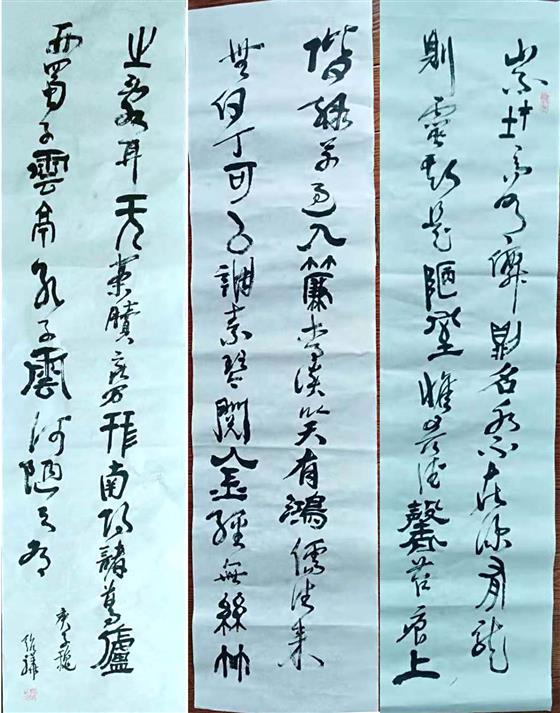 山不在高有僊則名水不在深有龍
則靈斯是陋室惟吾德馨苔痕上
階綠草色入簾青談笑有鴻儒往來
無白丁可以調素琴閱金經無絲竹
之亂耳无案牘之勞形南陽諸葛廬
西蜀子雲亭孔子雲何陋之有
庚子